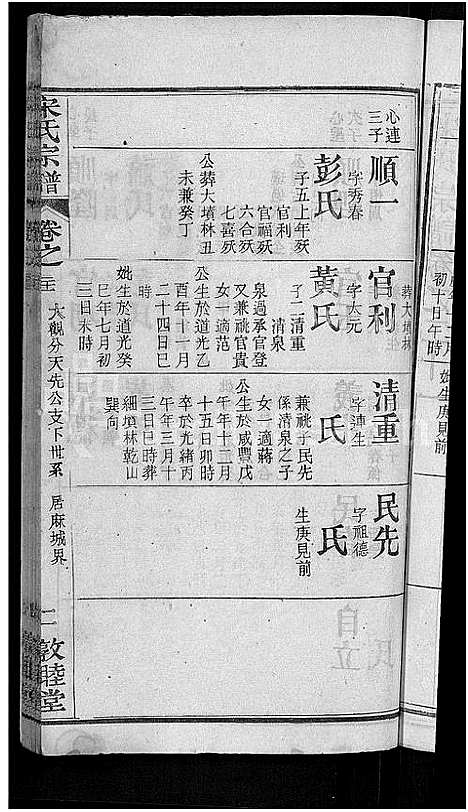 初十日午時
姓生庚見前
心連
三子
順一
字秀春
彭氏
子五上年殀
官利
官福殀
六合殀
七喜殀
公葬大墳林丑
未兼癸丁
葬大墳林
官利
字大元
黃氏
子二清重
清泉
泉過承官登
又兼祧官貴
女一適范
公生於道光乙
酉年十一月
二十四日巳
時
姚生於道光癸
巳年七月初
三日未時
清重
字連生
氏
兼祧子民先
係清泉之子
女一適蔣
公生於咸豐戊
午年十二月
十五日卯時
卒於光緒丙
午年三月十
三日巳時葬
細墳林乾山
巽向
民先
字祖德
氏
生庚見前
宋氏宗譜
卷之三
大觀分天先公支下世系
居麻城界
二
敦睦堂